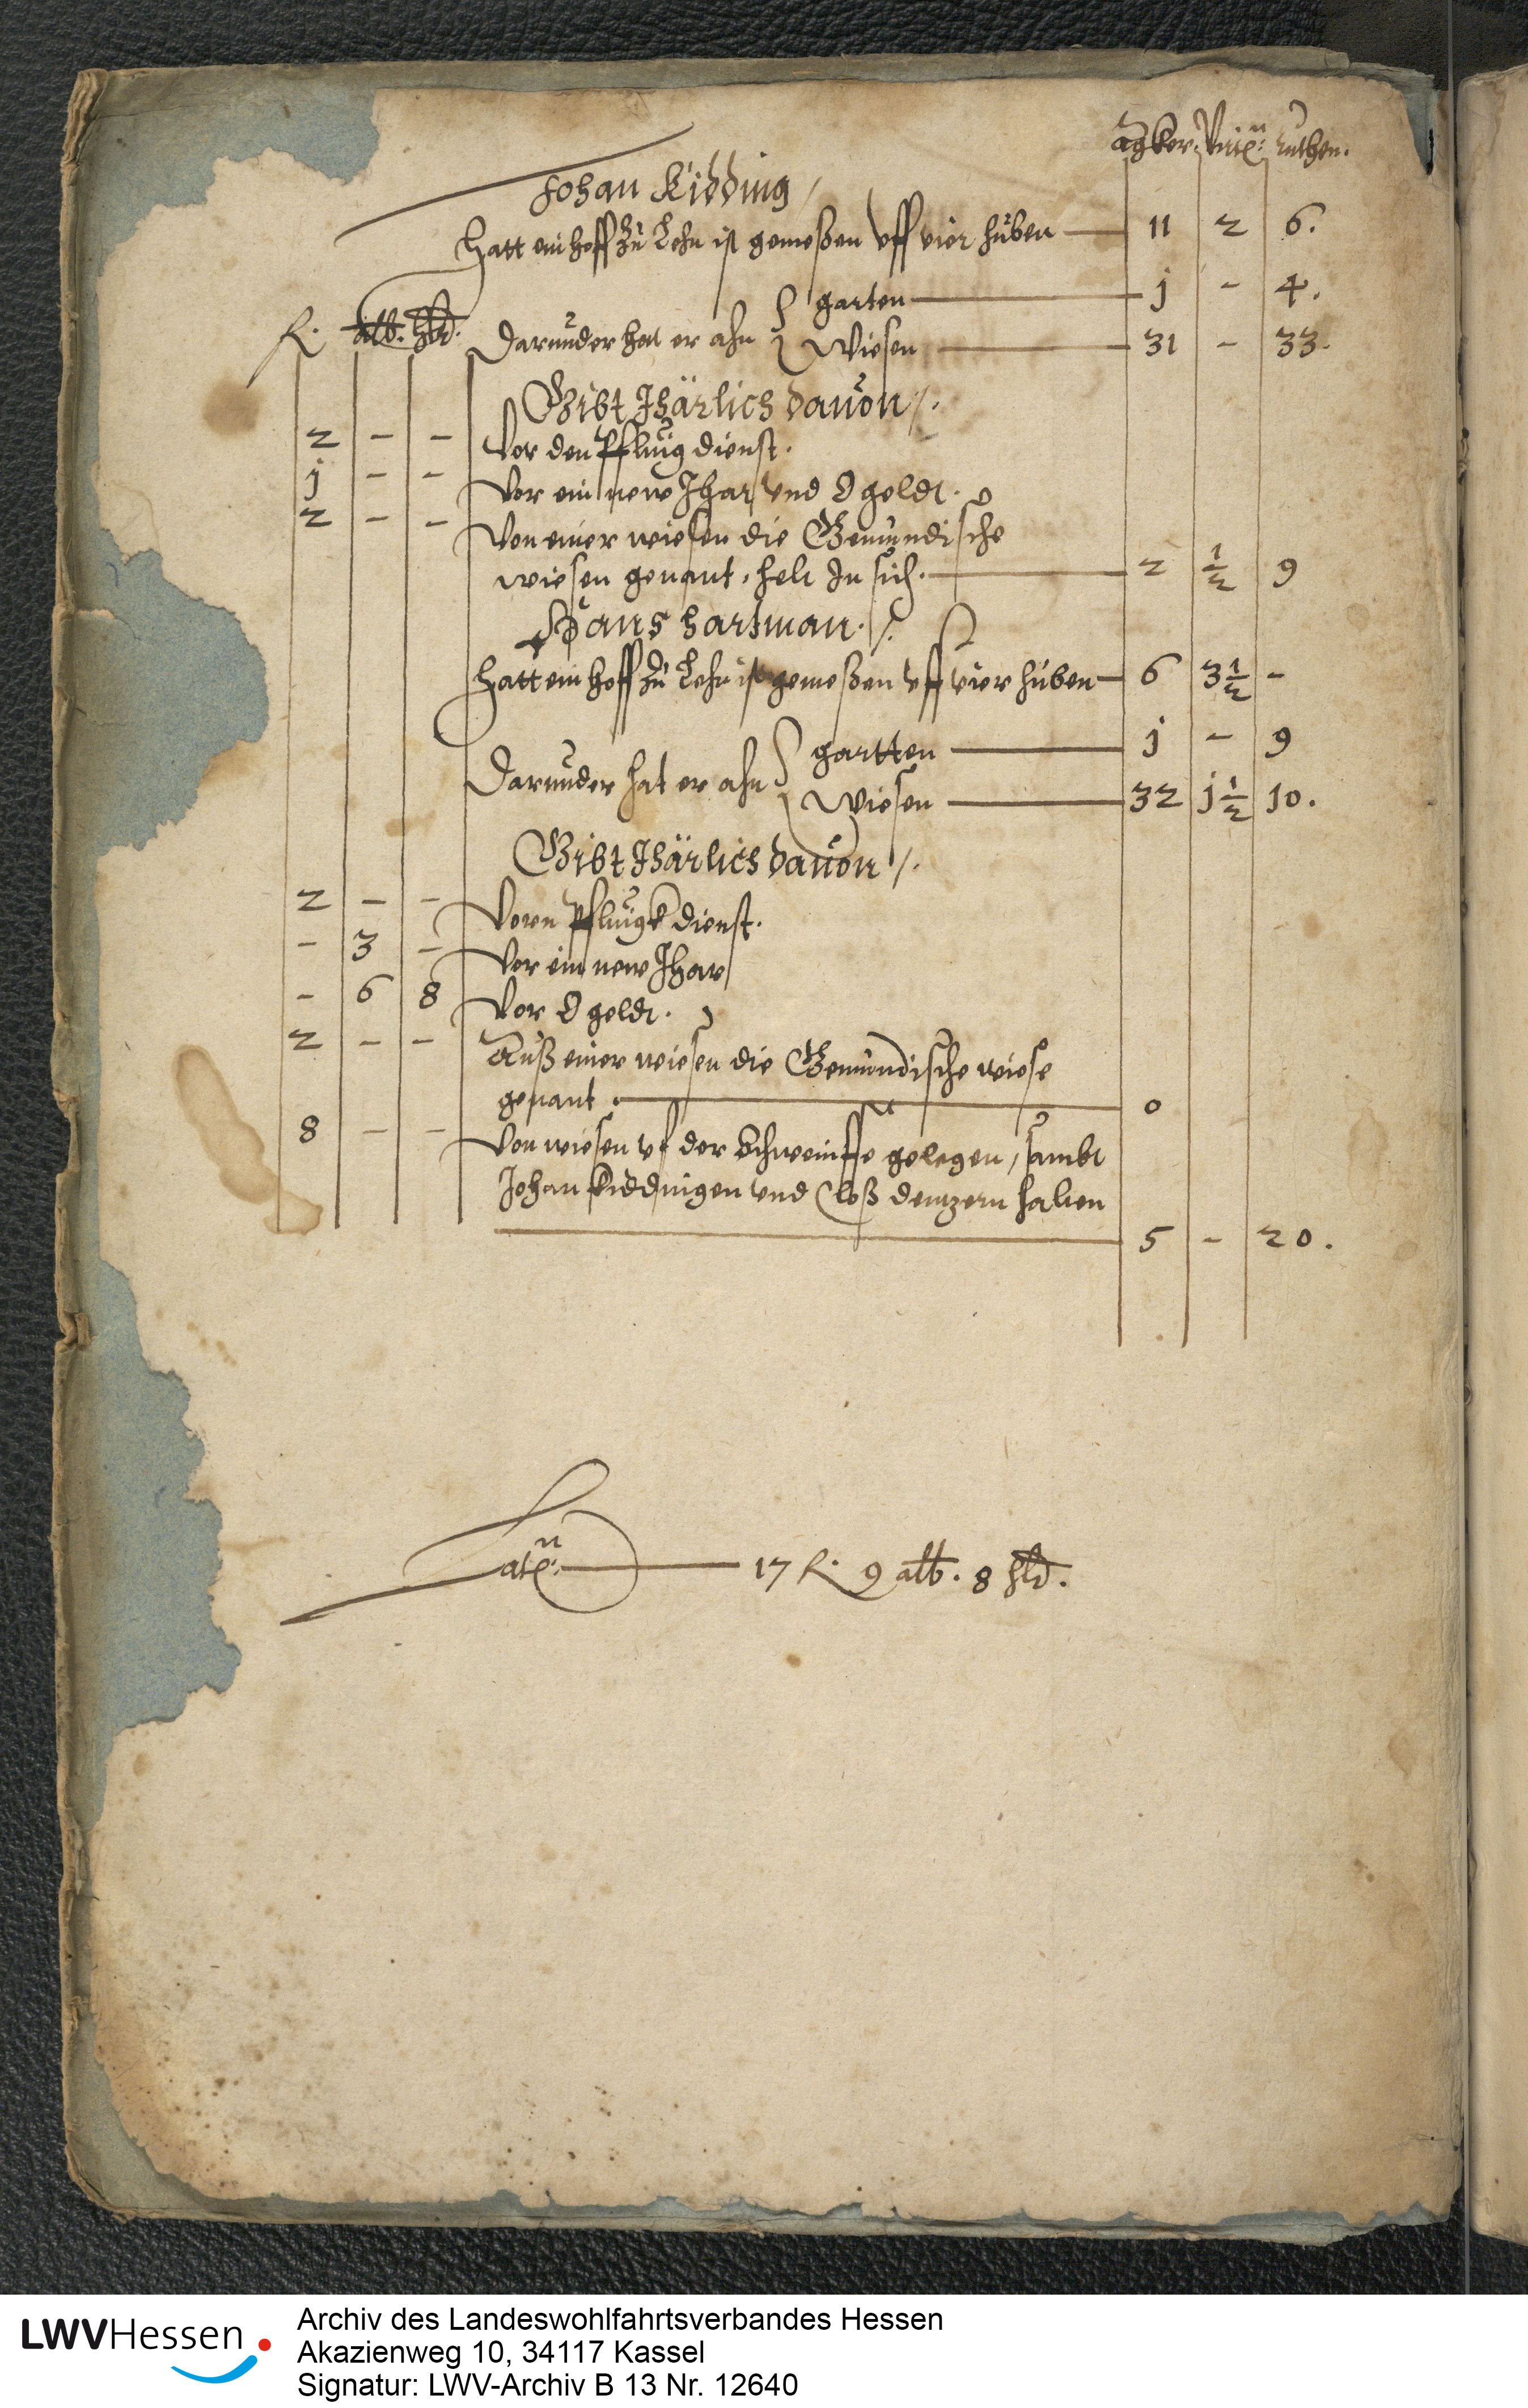 Agker. Virt: ruthen.
Johan Kidding
Hatt ein hoff zu Lehn ist gemeßen vff vier huben 11 2 6.
garten j - 4.
fl. alb. hlr. Darunder hat er ahn Wiesen 31 - 33.
Gibt Jhärlich dauon
2 - - Vor den Pflug dienst.
j - - Vor ein new Jhar vnd O geldt.
2 - - Von einer wiesen die Gemundische
wiesen genant, helt In sich. 2 1/2 9
Hans Hartman.
Hatt ein hoff zu Lehn ist gemeßen vff vier huben 6 3 1/2 -
gartten j - 9
Darunder hat er ahn Wiesen 32 j 1/2 10.
Gibt Jhärlich dauon
2 - - Vorn Pflugk dienst.
- 3 - Vor ein new Jhar
- 6 8 Vor O geldt.
2 - - Auß einer wiesen die Gemundische wiese
genant. 0
8 - - Von wiesen vf der Schweinffe gelegen, sambt
Johan Kiddingen vnd Cloß
5 - 20.
Lat: 17 fl. 9 alb. 8 hlr.
LWVHessen
Archiv des Landeswohlfahrtsverbandes Hessen
Akazienweg 10, 34117 Kassel
Signatur: LWV-Archiv B 13 Nr. 12640